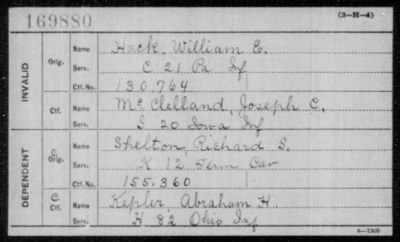 169880
(3-H-4)
INVALID
Orig.
Name Hack, William E.
Serv. C 21 Pa Inf
Ctf. No. 130.764
Ctf.
Name McClelland, Joseph C.
Serv. I 20 Iowa Inf
DEPENDENT
C Orig.
Name Shelton, Richard S.
Serv. K 12 Tenn Cav
Ctf. No. 155.360
C. Ctf.
Name Kepler, Abraham H.
Serv. H 82 Ohio Inf